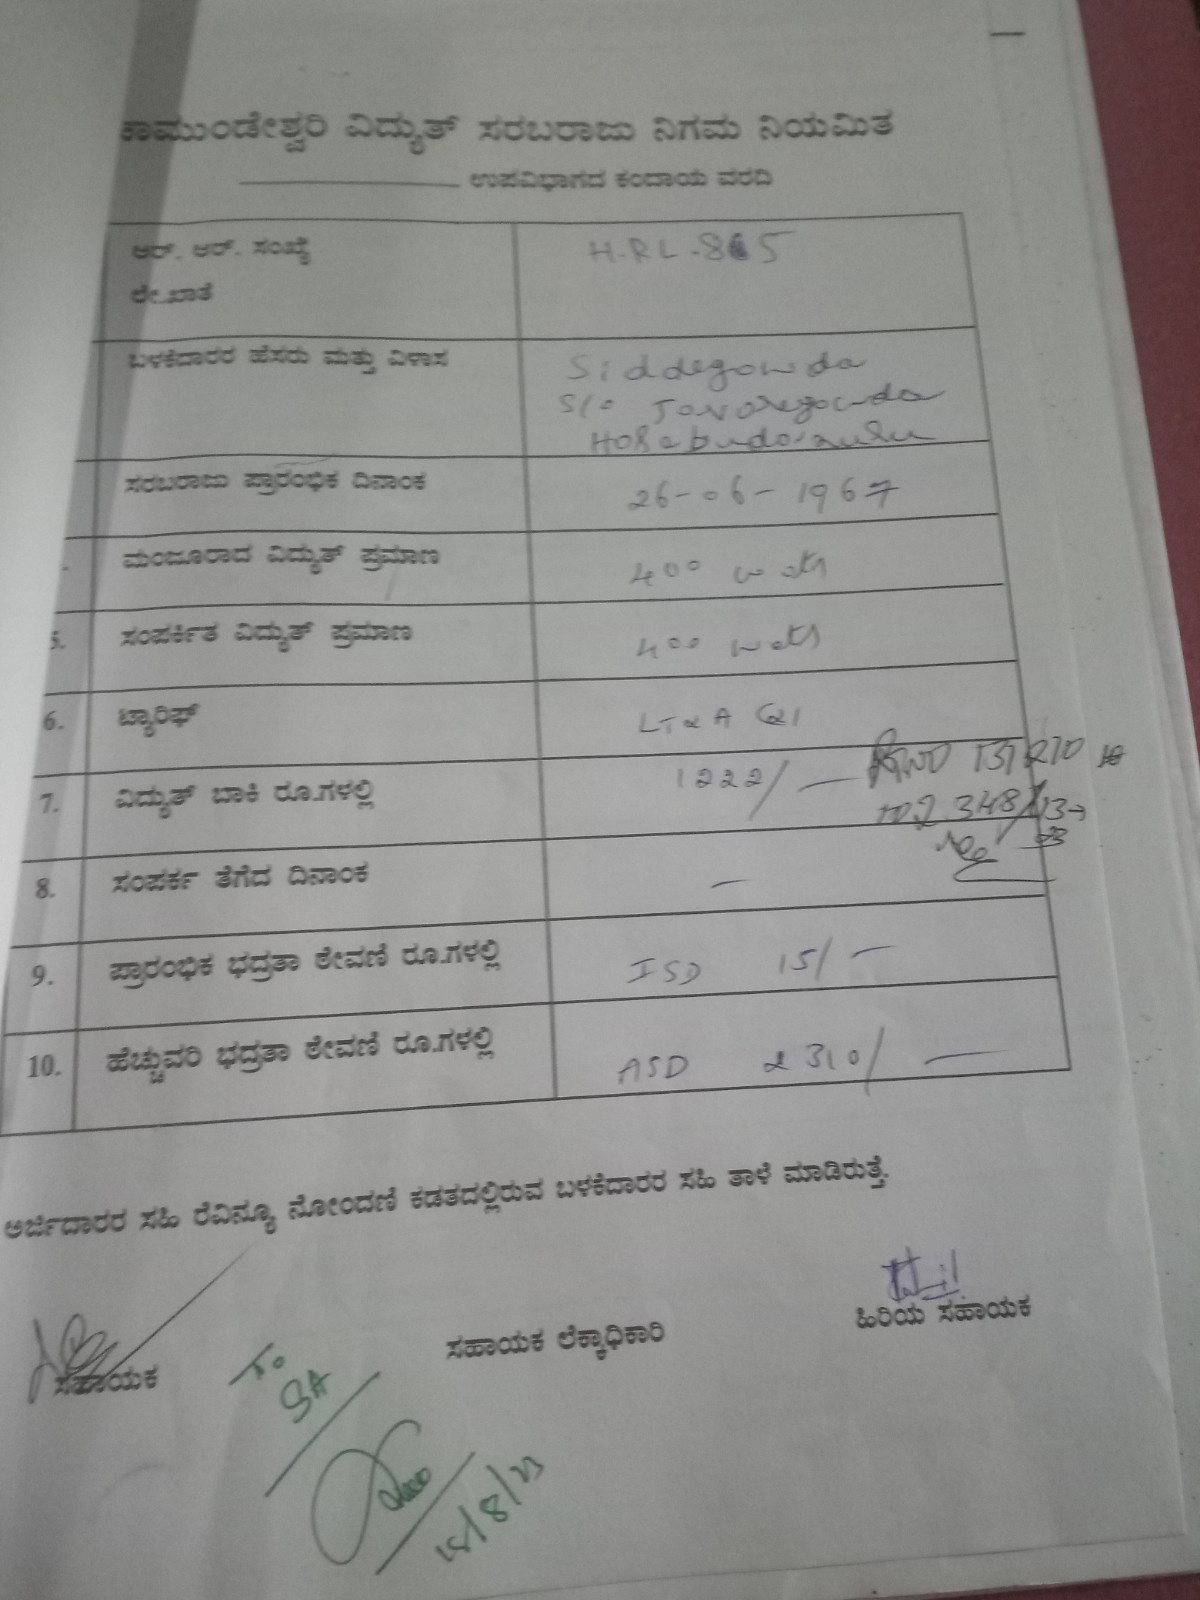 ಕಾಮುಂಡೇಶ್ವರಿ ವಿದ್ಯುತ್ ಸರಬರಾಜು ನಿಗಮ ನಿಯಮಿತ
ಉಪವಿಭಾಗದ ಕಂದಾಯ ವರದಿ
ಆರ್. ಆರ್. ಸಂಖ್ಯೆ H.RL.865
ಲೇ.ಖಾತೆ
ಬಳಕೆದಾರರ ಹೆಸರು ಮತ್ತು ವಿಳಾಸ Siddegowda
S/o Javaregowda
ಸರಬರಾಜು ಪ್ರಾರಂಭಿಕ ದಿನಾಂಕ 26-06-1967
ಮಂಜೂರಾದ ವಿದ್ಯುತ್ ಪ್ರಮಾಣ 400 watts
5. ಸಂಪರ್ಕಿತ ವಿದ್ಯುತ್ ಪ್ರಮಾಣ 400 watts
6. ಟ್ಯಾರಿಫ್ LT2A
7. ವಿದ್ಯುತ್ ಬಾಕಿ ರೂ.ಗಳಲ್ಲಿ 1222/-
8. ಸಂಪರ್ಕ ತೆಗೆದ ದಿನಾಂಕ -
9. ಪ್ರಾರಂಭಿಕ ಭದ್ರತಾ ಠೇವಣಿ ರೂ.ಗಳಲ್ಲಿ ISD 15/-
10. ಹೆಚ್ಚುವರಿ ಭದ್ರತಾ ಠೇವಣಿ ರೂ.ಗಳಲ್ಲಿ ASD 2310/-
ಅರ್ಜಿದಾರರ ಸಹಿ ರೆವಿನ್ಯೂ ನೋಂದಣಿ ಕಡತದಲ್ಲಿರುವ ಬಳಕೆದಾರರ ಸಹಿ ತಾಳೆ ಮಾಡಿರುತ್ತೆ.
ಸಹಾಯಕ ಸಹಾಯಕ ಲೆಕ್ಕಾಧಿಕಾರಿ ಹಿರಿಯ ಸಹಾಯಕ
To
SA